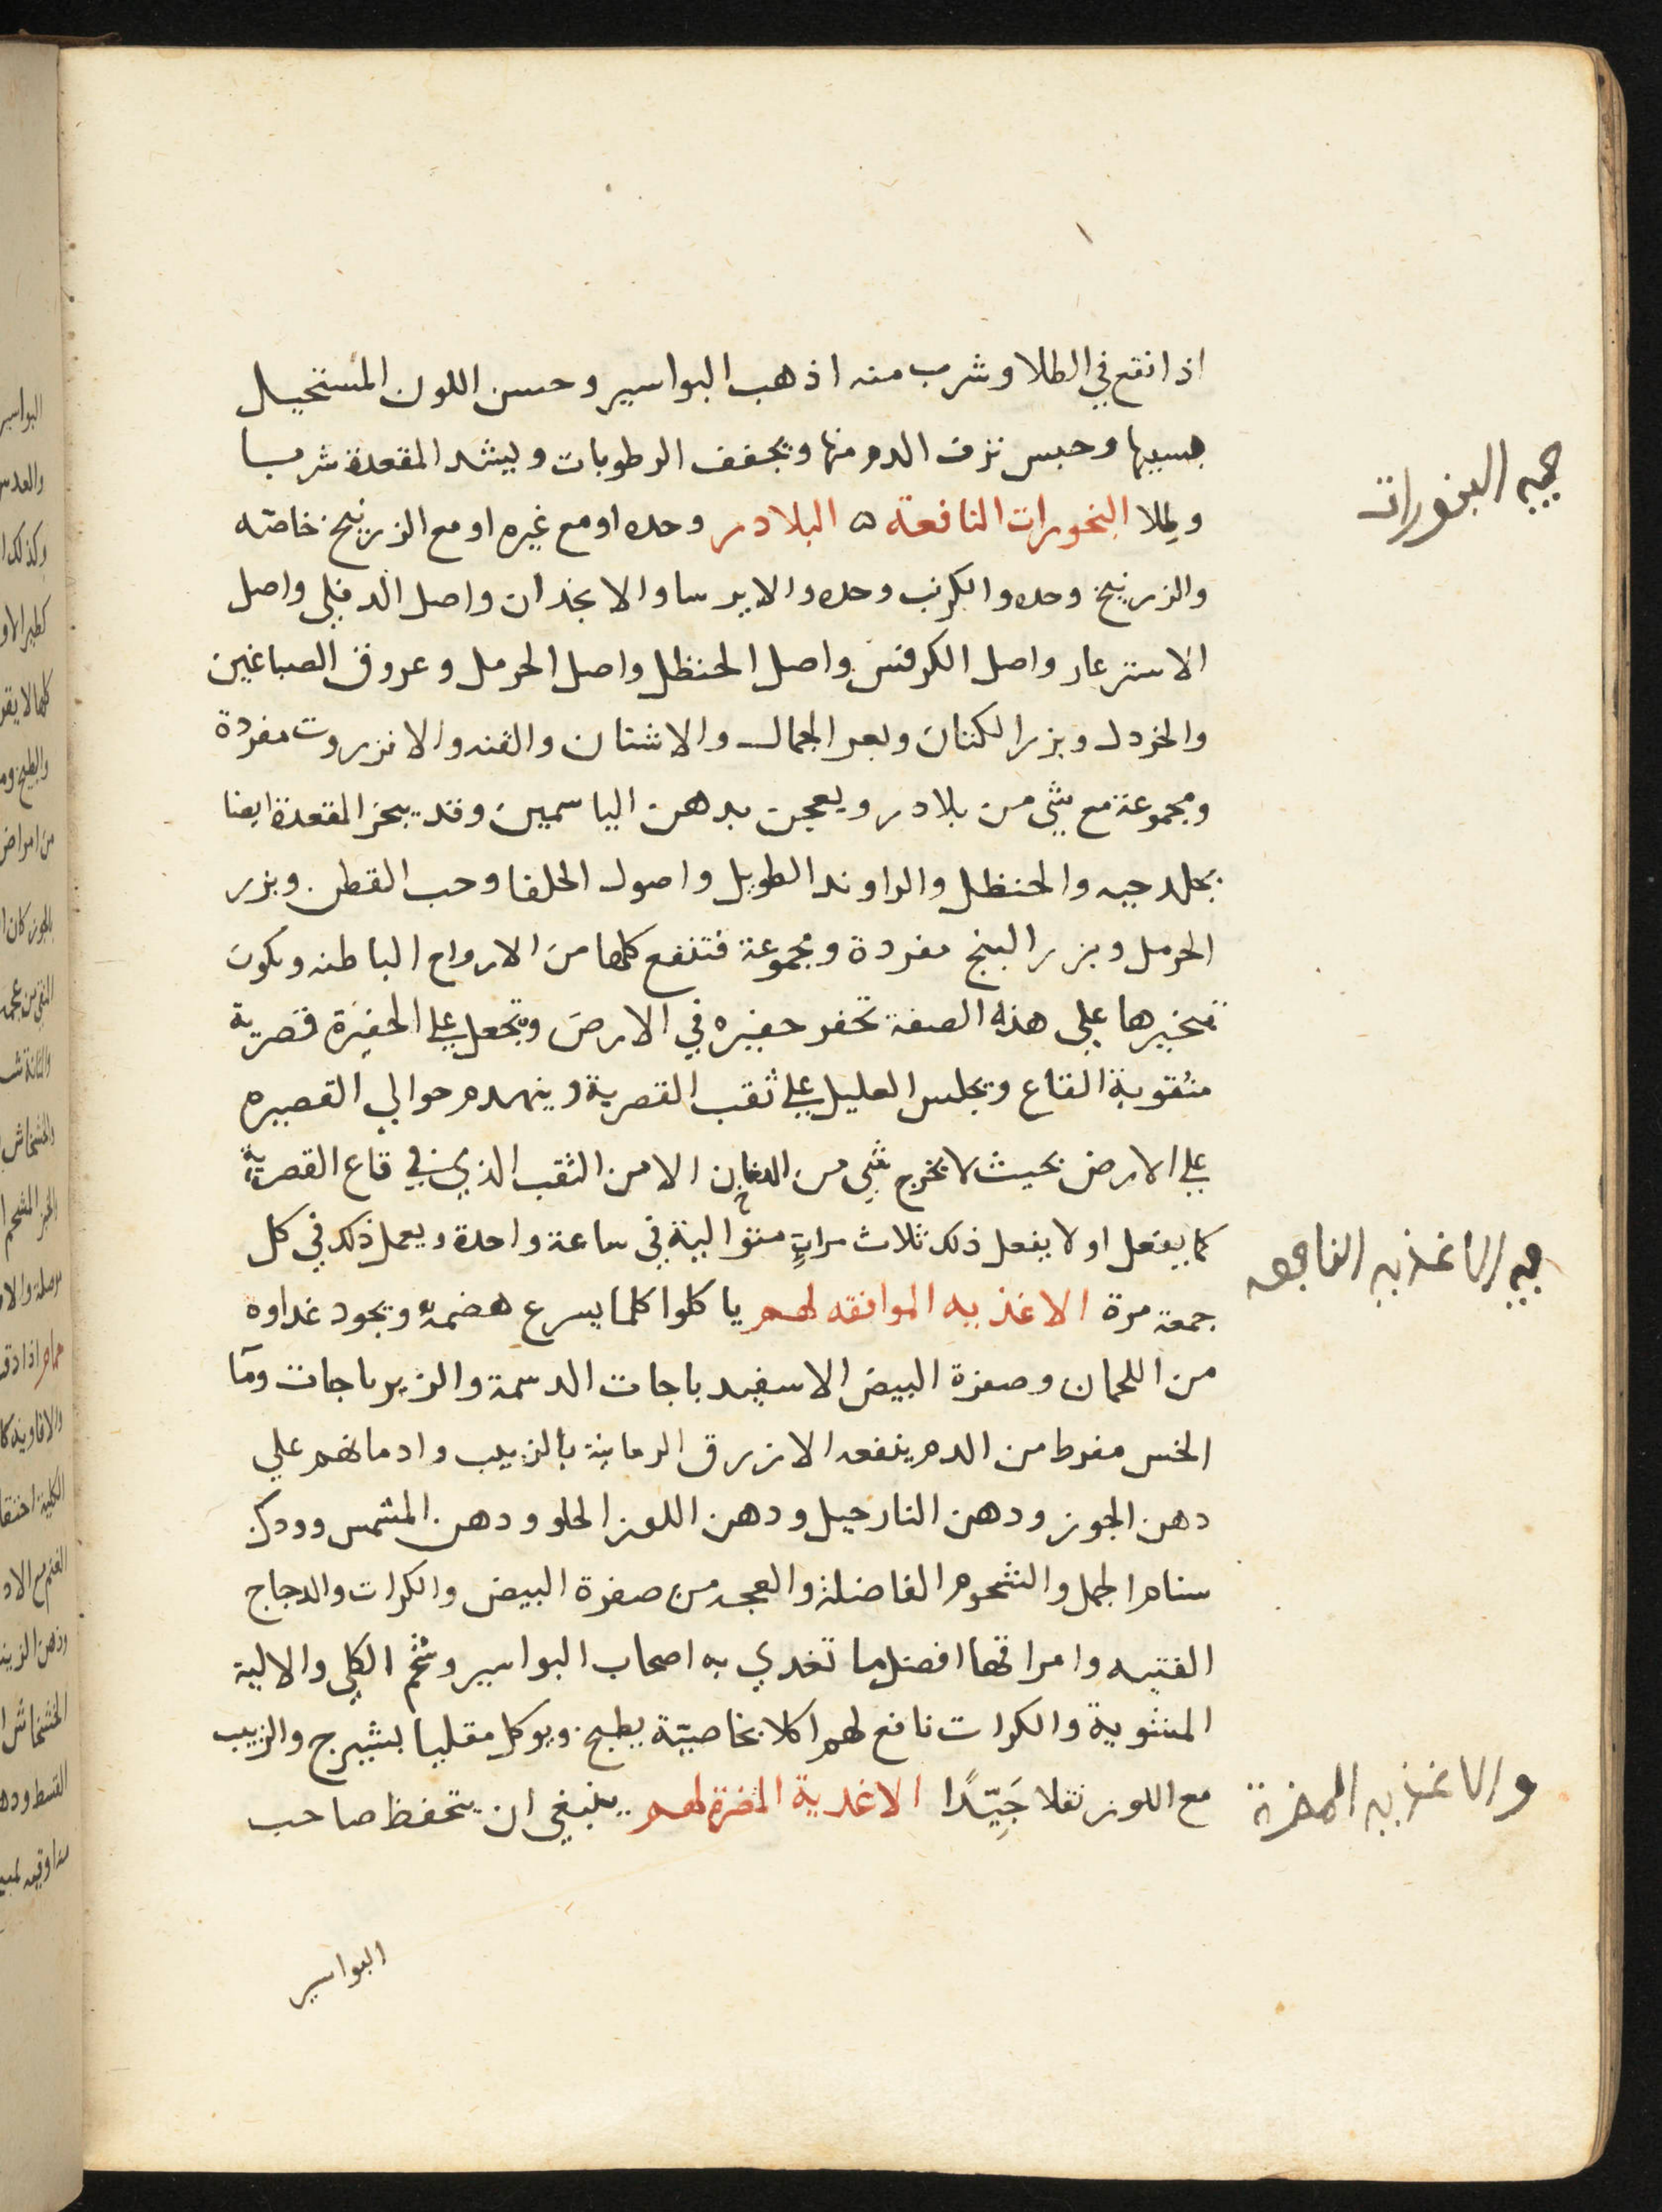 اذا نقع في الطلا وشرب منه اذهب البواسير وحسن اللون المستحيل
بسببها وحبس نزف الدم منها ويجفف الرطوبات ويشد المقعدة شربا
وطلا البخورات النافعة ه البلادر وحده او مع غيره او مع الزرنيخ خاصّه
والزرنيخ وحده والكرنب وحده والايرسا والانجدان واصل الدفلي واصل
الاسترغار واصل الكرفس واصل الحنظل واصل الحرمل وعروق الصباغين
والخردل وبزر الكتان وبعر الجمال والاشنان والقنه والانزروت مفردة
ومجموعة مع شي من بلادر ويعجن بدهن الياسمين وقد يبخر المقعدة ايضا
بجلد حيه والحنظل والراوند الطويل واصول الحلفا وحب القطن وبزر
الحرمل وبزر البنج مفردة ومجموعة فتنفع كلها من الارواح الباطنه ويكون
تبخيرها علي هذه الصفة تحفر حفيره في الارض وتجعل علي الحفيرة قصرية
مثقوبة القاع ويجلس العليل علي ثقب القصرية ويهدم حوالي القصيره
علي الارض بحيث لا يخرج شي من الدخان الا من الثقب الذي في قاع القصرية
كما يفعل اولا يفعل ذلك ثلاث مراتٍ متوالية في ساعة واحدة ويعمل ذلك في كل
جمعة مرة الاغذيه الموافقه لهم ياكلوا كلما يسرع هضمه ويجود غداوه
من اللحمان وصفرة البيض الاسفيدباجات الدسمة والزيرباجات وما
الخس مفرط من الدم ينفعه الازرق الرمانية بالزبيب وادمانهم علي
دهن الجوز ودهن النارجيل ودهن اللوز الحلو ودهن المشمس وودك
سنام الجمل والشحوم الفاضلة والعجه من صفرة البيض والكرات والدجاج
الفتيه وامراقها افضل ما تغدي به اصحاب البواسير وشحم الكلي والالية
المشوية والكرات نافع لهم اكلا بخاصيّة يطبخ ويوكل مقليا بشيرج والزبيب
مع اللوز نقلا جَيِّدًا الاغدية المضرة لهم ينبغي ان يتحفظ صاحب
البواسير
البخورات
الاغذيه النافعه
والاغذيه المضرة